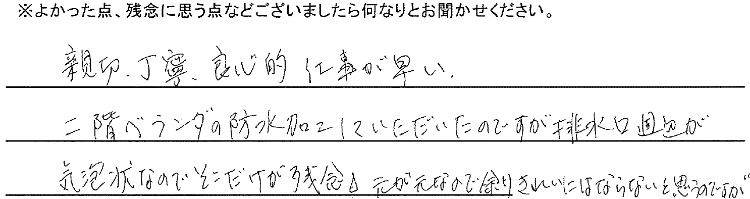 ※よかった点、残念に思う点などございましたら何なりとお聞かせください。
親切、丁寧、良心的 仕事が早い.
二階ベランダの防水加工していただいたのですが排水口周辺が
気泡状なのでそこだけが残念。元が元なので余りきれいにはならないと思うのですが